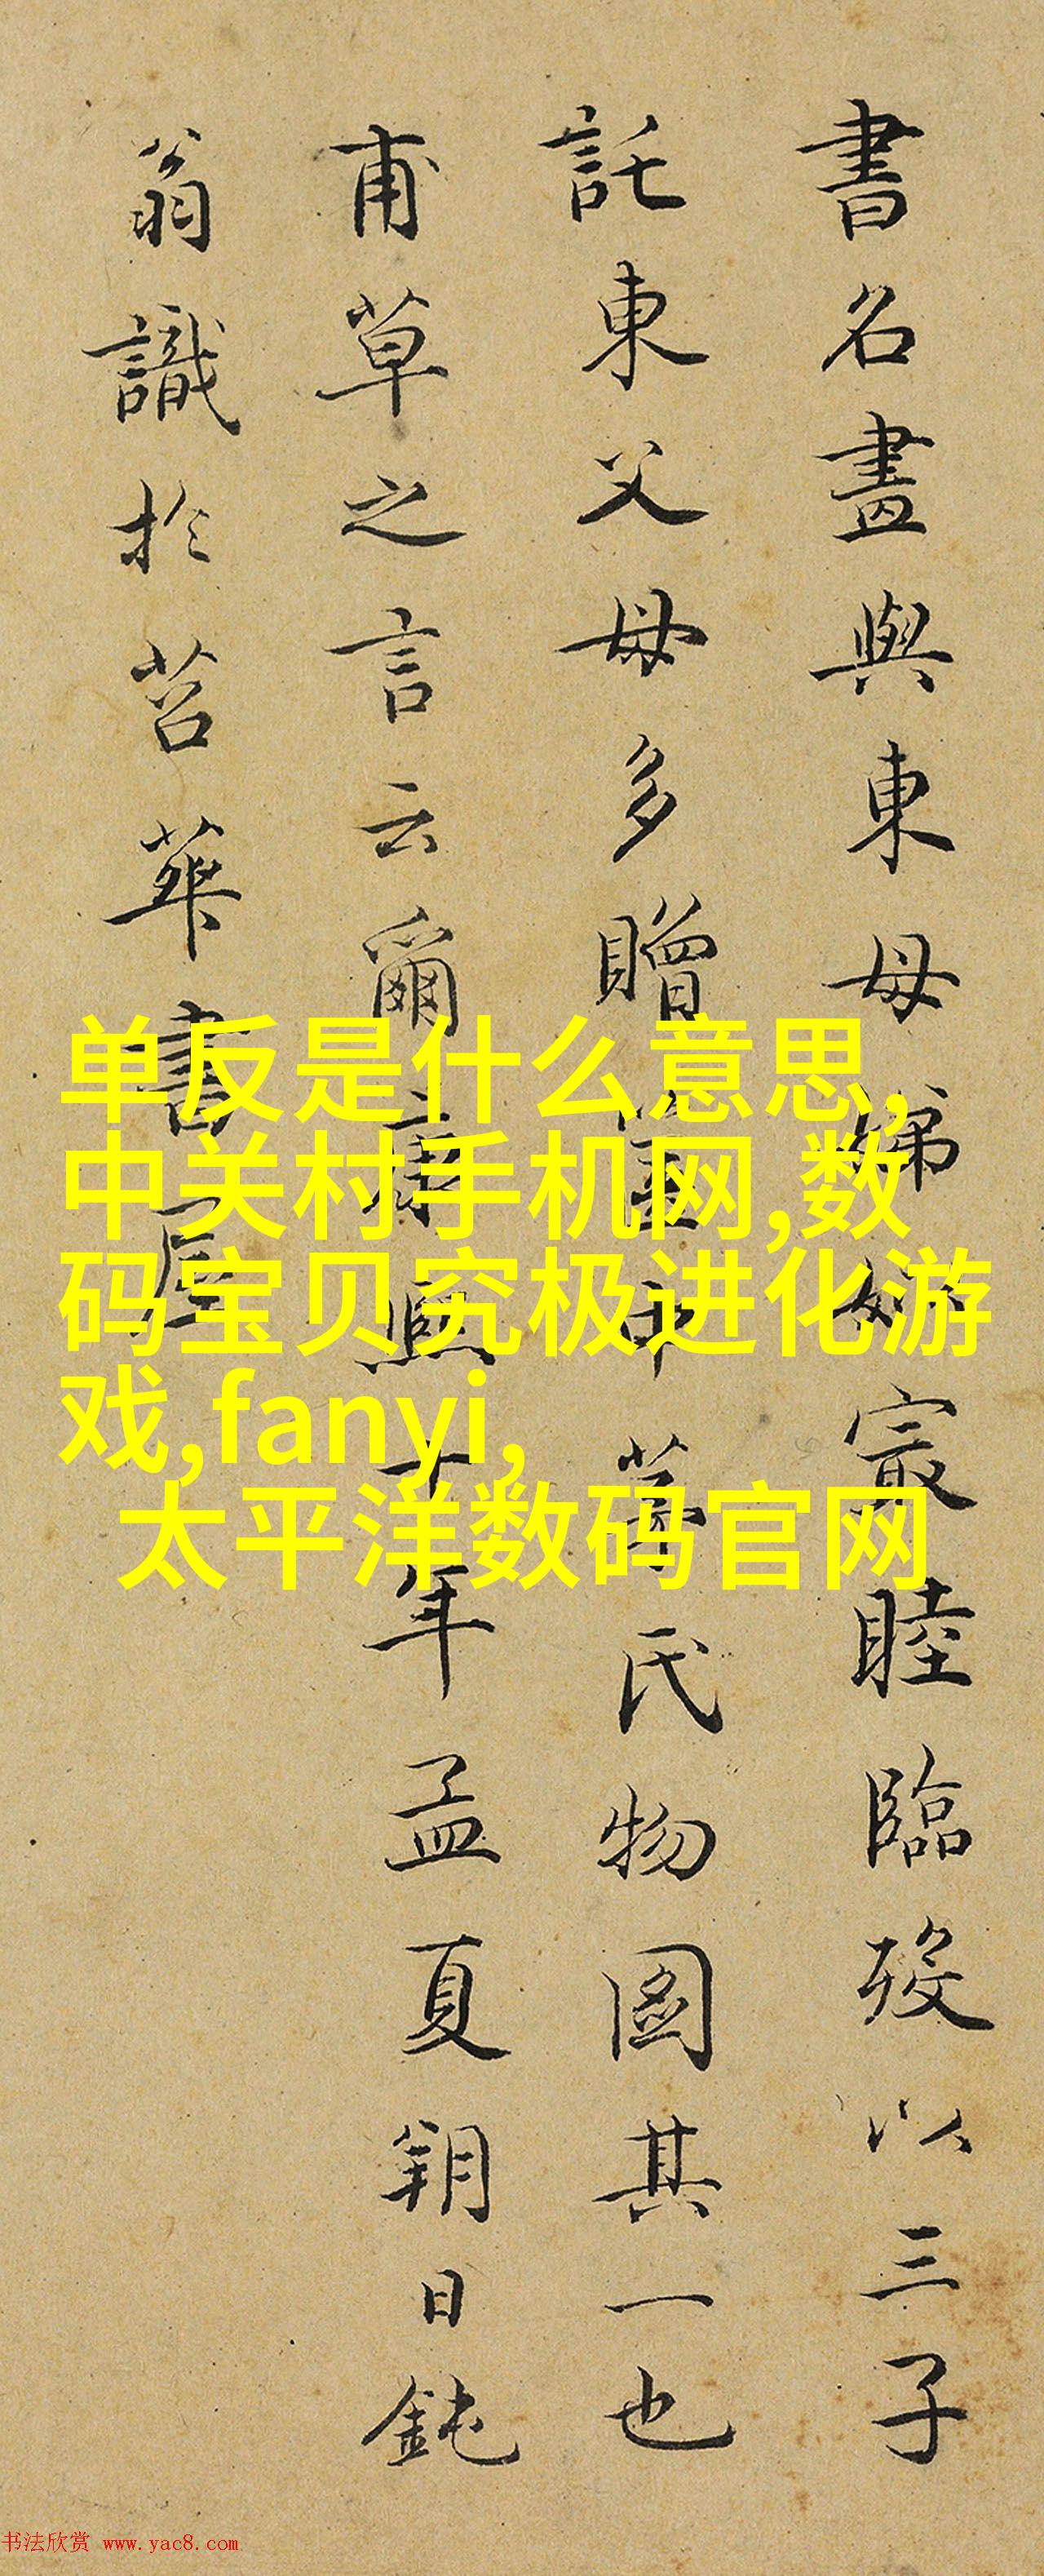 書名畫與東母娣姒寂睦臨歿以三子
託東父母多贈畫中蕚氏物圖其一也
甫草之言云爾 康熙十年孟夏朔日鈍
翁識於苕華書屋
单反是什么意思,
中关村手机网,数
码宝贝究极进化游
戏,fanyi,
太平洋数码官网
书法欣赏 www.yac8.com